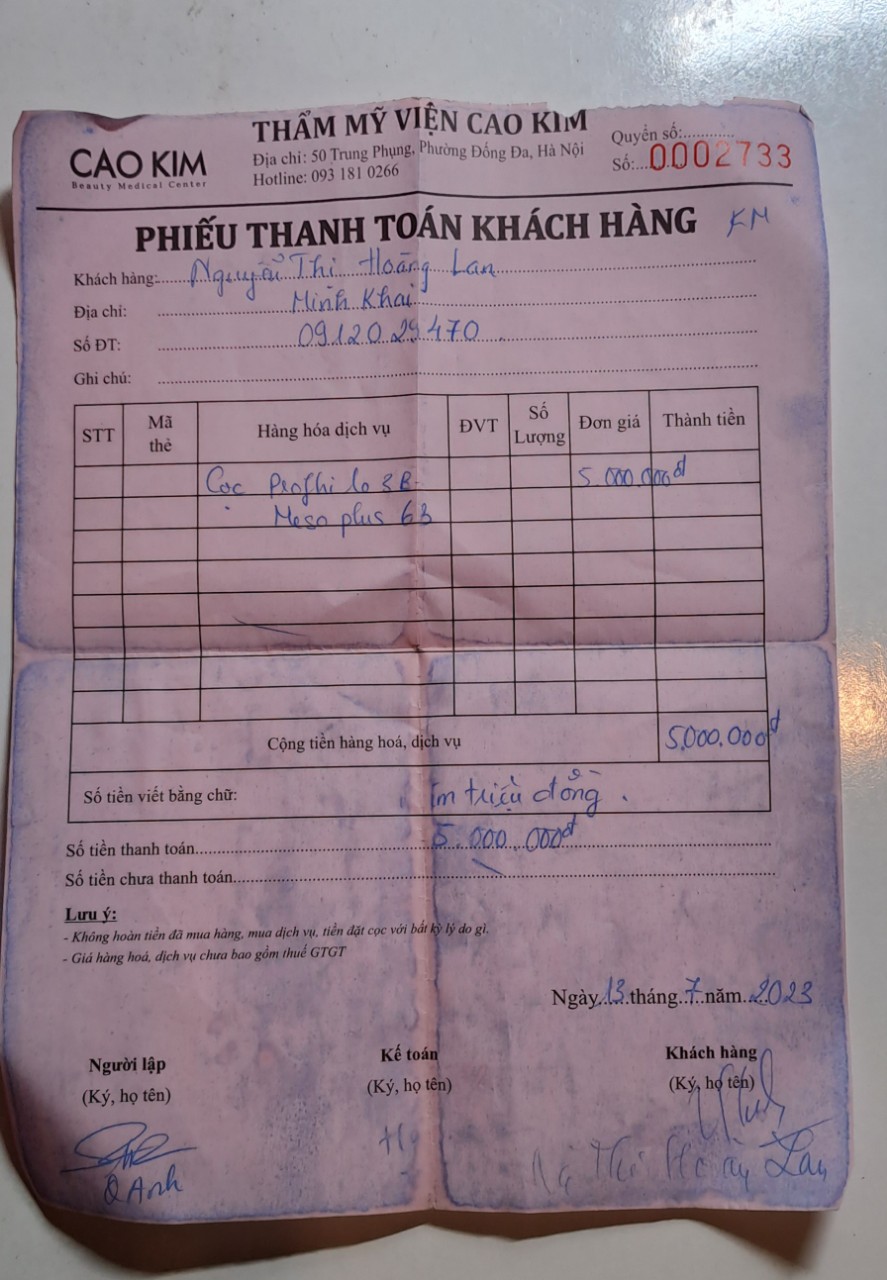 THẨM MỸ VIỆN CAO KIM
CAO KIM
Beauty Medical Center
Địa chỉ: 50 Trung Phụng, Phường Đống Đa, Hà Nội
Hotline: 093 181 0266
Quyển số:............
Số:...0002733
PHIẾU THANH TOÁN KHÁCH HÀNG KM
Khách hàng: Nguyễn Thị Hoàng Lan
Địa chỉ: Minh Khai
Số ĐT: 0912029470
Ghi chú:
STT Mã thẻ Hàng hóa dịch vụ ĐVT Số Lượng Đơn giá Thành tiền
Cọc Profhilo 3B 5.000.000đ
Meso plus 6B
Cộng tiền hàng hoá, dịch vụ 5.000.000đ
Số tiền viết bằng chữ: triệu đồng.
Số tiền thanh toán 5.000.000đ
Số tiền chưa thanh toán
Lưu ý:
- Không hoàn tiền đã mua hàng, mua dịch vụ, tiền đặt cọc với bất kỳ lý do gì.
- Giá hàng hoá, dịch vụ chưa bao gồm thuế GTGT
Ngày 13 tháng 7 năm 2023
Người lập Kế toán Khách hàng
(Ký, họ tên) (Ký, họ tên) (Ký, họ tên)
Q Anh Thị Hoàng Lan